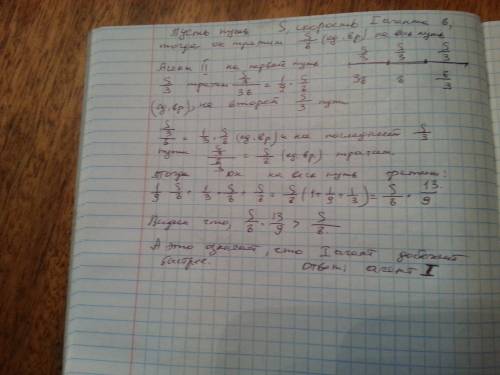 Пусть путь S, скорость I агента в,
тогда он тратит S/в (ед. вр) на весь путь
Агент II на первой путь S/3 S/3 S/3
S/3 тратит (S/3)/3в = 1/9 · S/в 3в в в/3
(ед. вр), на второй S/3 путь
(S/3)/в = 1/3 · S/в (ед. вр) и на последней S/3
пути (S/3)/(в/3) = S/в (ед. вр) тратит.
Тогда он на весь путь тратит:
1/9 · S/в + 1/3 · S/в + S/в = S/в (1 + 1/9 + 1/3) = S/в · 13/9
Видим что, S/в · 13/9 > S/в.
А это означает, что I агент добежит
быстрее. ответ: агент I